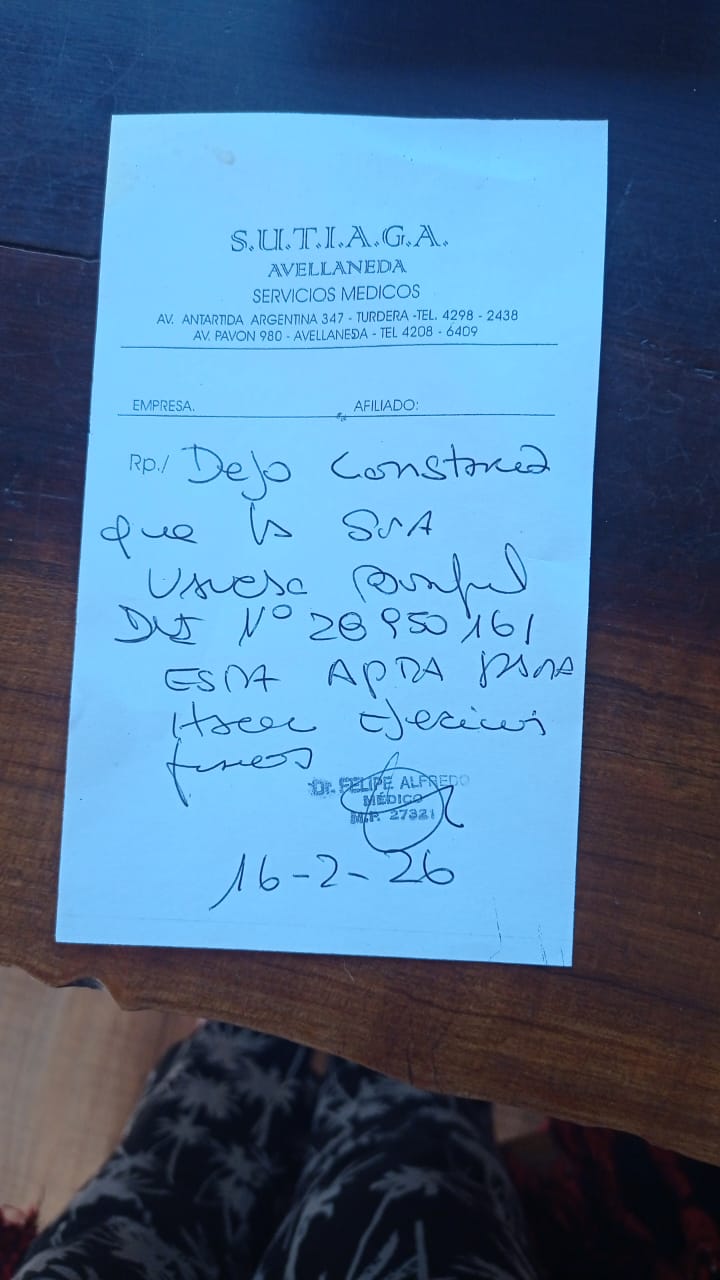 S.U.T.I.A.G.A.
AVELLANEDA
SERVICIOS MEDICOS
AV. ANTARTIDA ARGENTINA 347 - TURDERA -TEL. 4298 - 2438
AV. PAVON 980 - AVELLANEDA - TEL 4208 - 6409
EMPRESA. AFILIADO:
Rp./ Dejo Constancia
que la SRA
DNI Nº 28950161
ESTA APTA PARA
Hacer Ejercicios
fisicos
Dr. FELIPE ALFREDO
MÉDICO
M.P. 27321
16-2-26